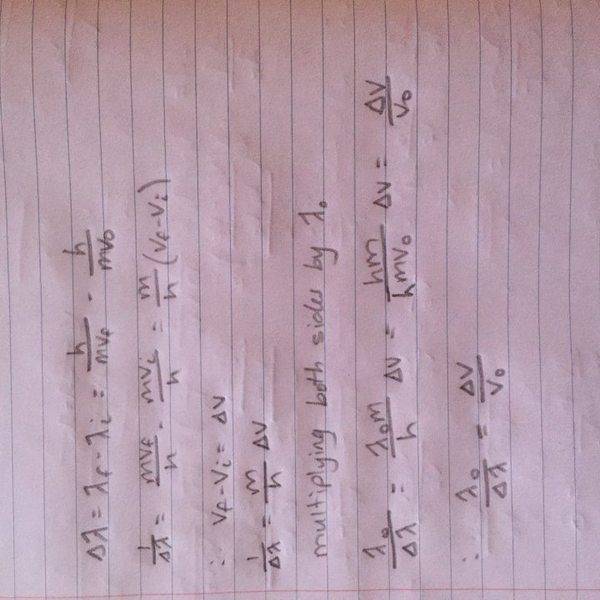 Δλ = λf - λi = h/mvf - h/mv0
1/Δλ = mvf/h - mvi/h = m/h (vf - vi)
∴ vf - vi = Δv
1/Δλ = m/h Δv
multiplying both sides by λ0
λ0/Δλ = λ0m/h Δv = hm/hmv0 Δv = Δv/v0
∴ λ0/Δλ = Δv/v0